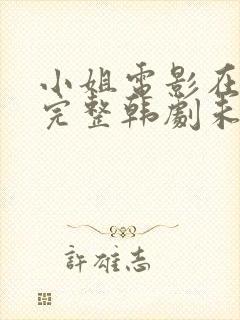 小姐電影在
完整韩劇未
許雄志